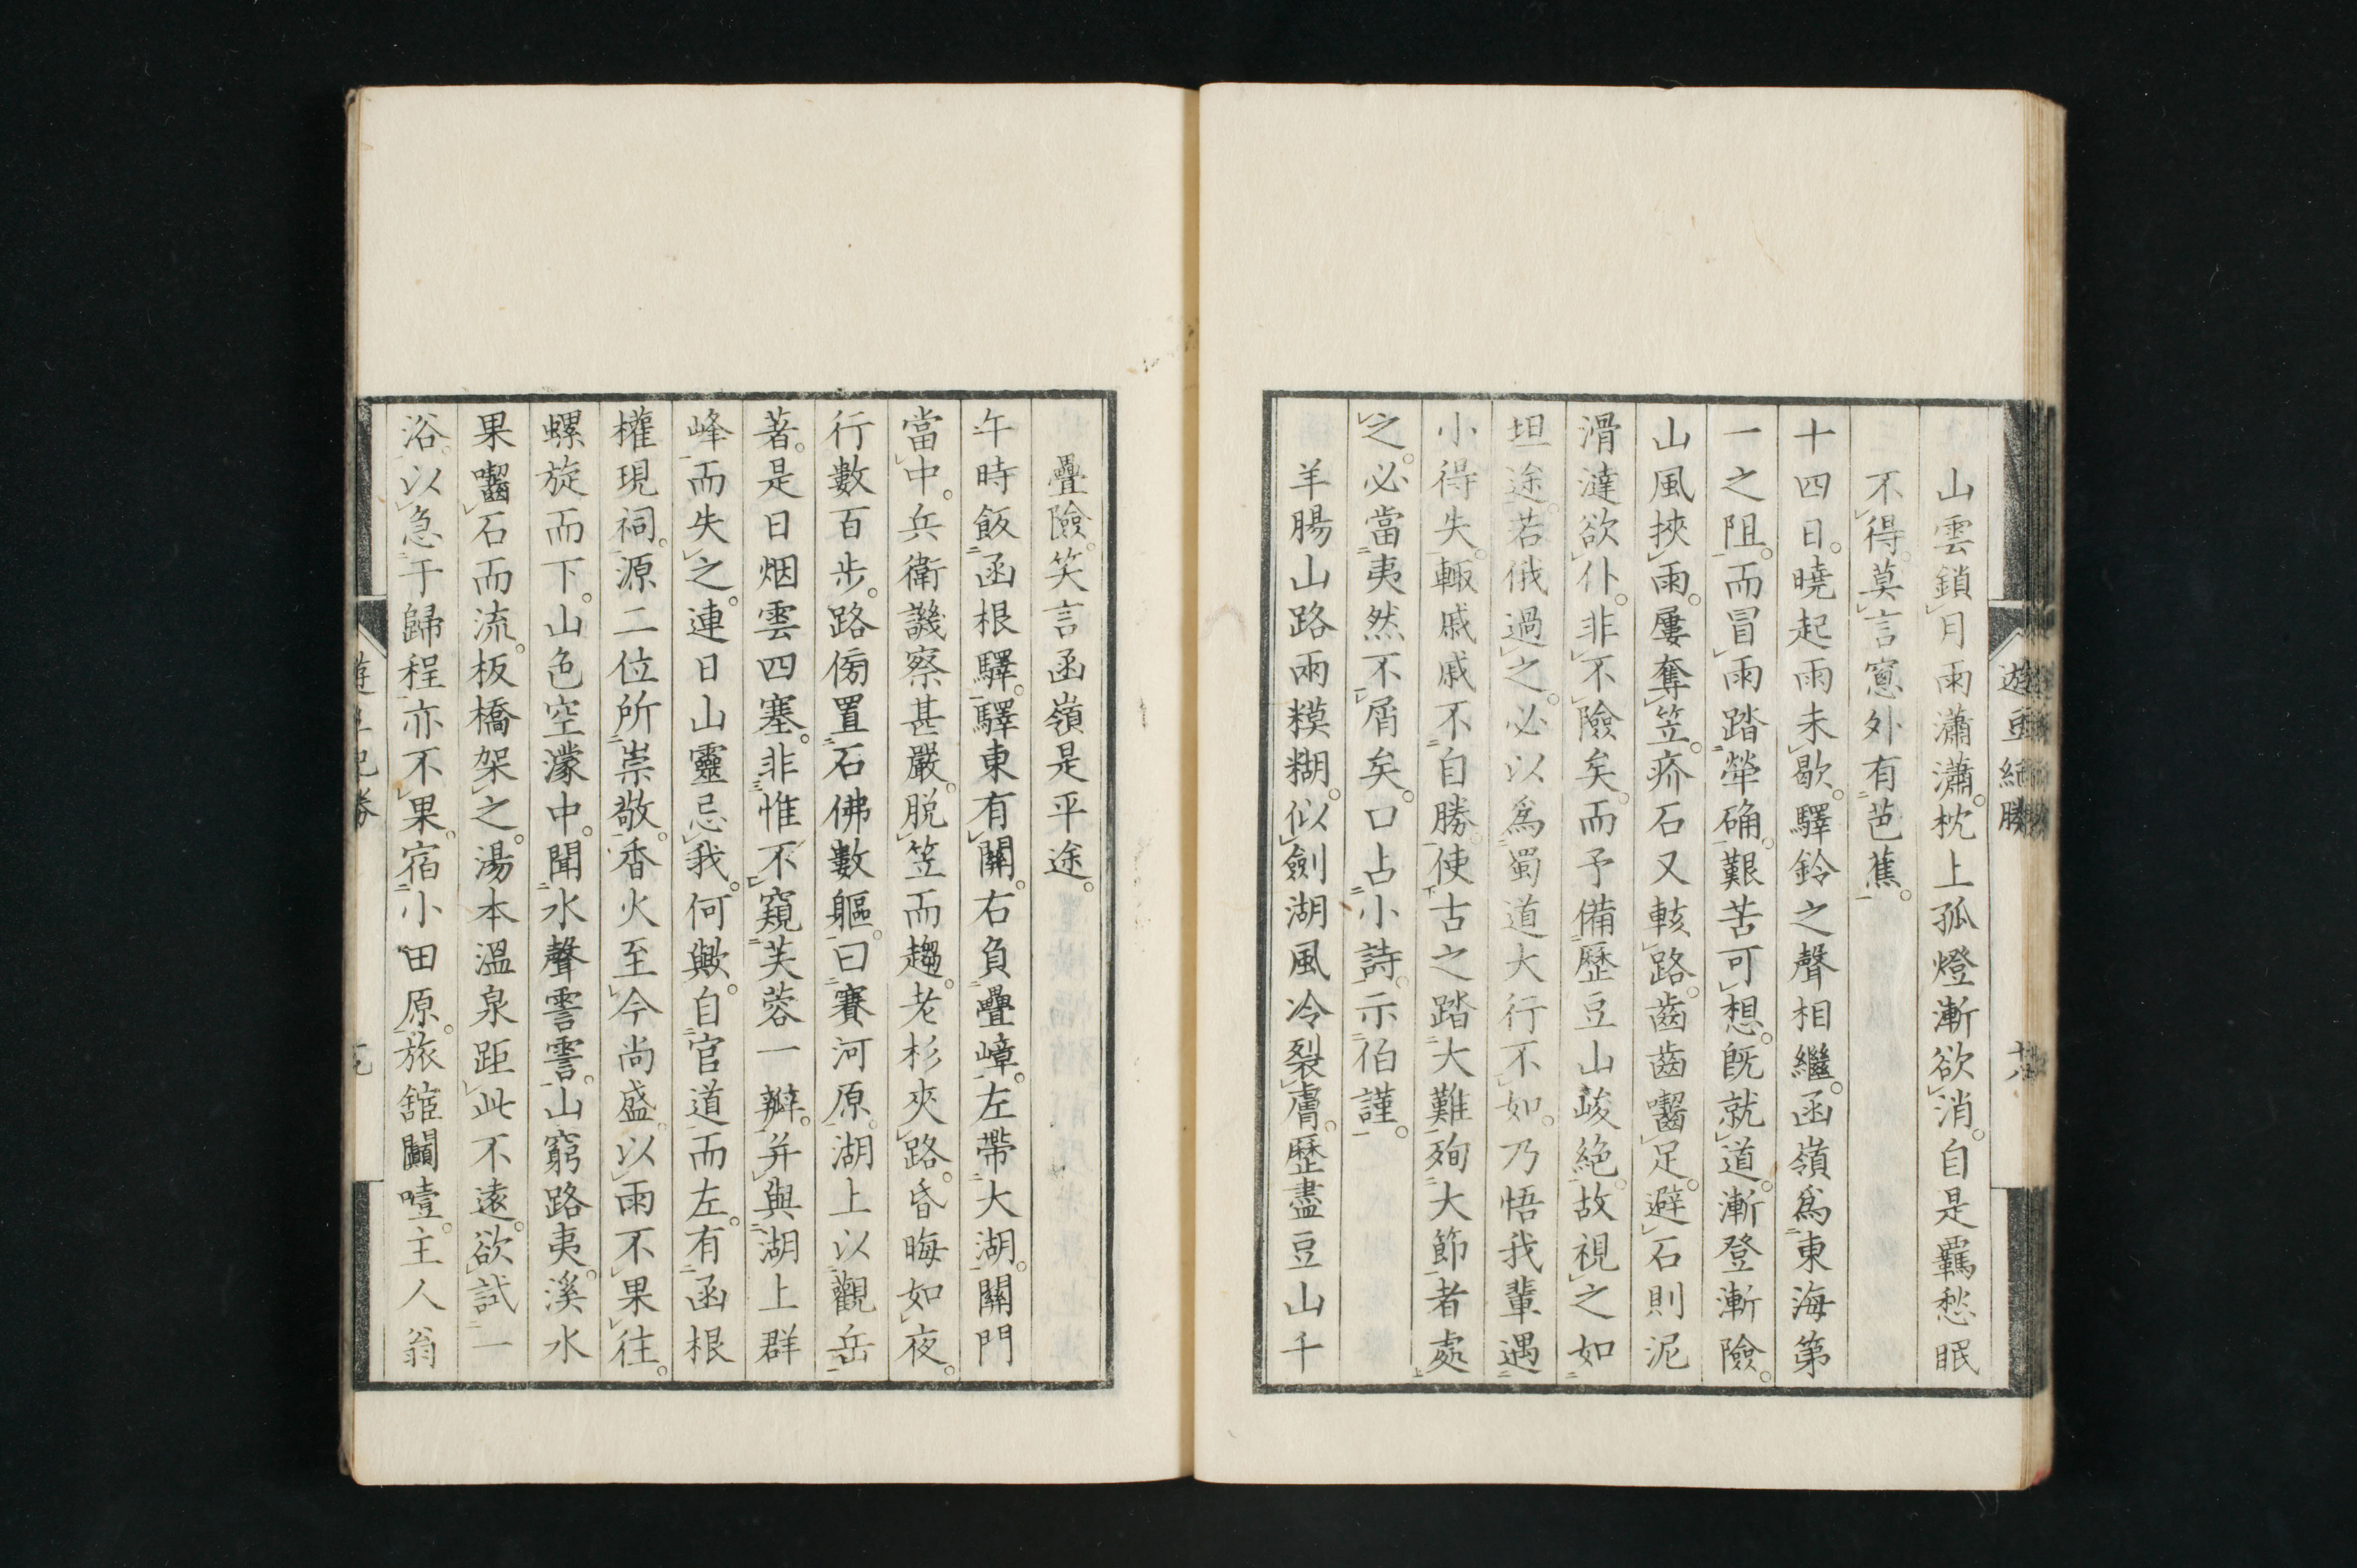 山雲鎖月雨瀟瀟。枕上孤燈漸欲消。自是羈愁眠
不得。莫言窻外有芭蕉。
十四日。曉起雨未歇。驛鈴之聲相繼。函嶺爲東海第
一之阻。而冒雨踏犖确。艱苦可想。既就道。漸登漸險。
山風挾雨。屢奪笠。疥石又輆路。齒齒齧足。避石則泥
滑澾欲仆。非不險矣。而予備歷豆山峻絶。故視之如
坦途。若俄過之。必以爲蜀道大行不如。乃悟我輩遇
小得失。輙戚戚不自勝。使古之踏大難殉大節者處
之。必當夷然不屑矣。口占小詩。示伯謹。
羊腸山路兩糢糊。似劍湖風冷裂膚。歷盡豆山千
疊險。笑言函嶺是平途。
午時飯函根驛。驛東有關。右負疊嶂。左帶大湖。關門
當中。兵衛譏察甚嚴。脱笠而趨。老杉夾路。昏晦如夜。
行數百步。路傍置石佛數軀。曰賽河原。湖上以觀岳
著。是日烟雲四塞。非惟不窺芙蓉一瓣。并與湖上群
峰而失之。連日山靈忌我。何歟。自官道而左。有函根
權現祠。源二位所崇敬。香火至今尚盛。以雨不果往。
螺旋而下。山色空濛中。聞水聲霅霅。山窮路夷。溪水
果齧石而流。板橋架之。湯本溫泉距此不遠。欲試一
浴。以急于歸程。亦不果。宿小田原。旅舘闐噎。主人翁
遊豆紀勝